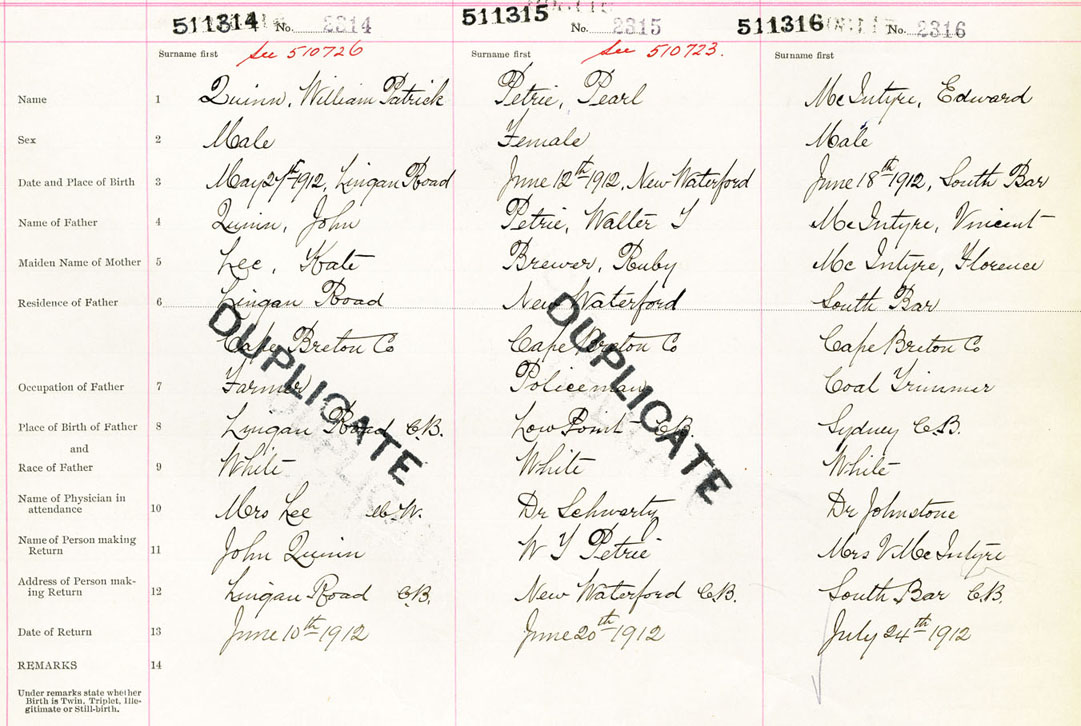 511314 No. 2314 511315 No. 2315 511316 No. 2316
Surname first See 510726 Surname first See 510723. Surname first
Name 1 Quinn, William Patrick Petrie, Pearl McIntyre, Edward
Sex 2 Male Female Male
Date and Place of Birth 3 May 27th 1912, Lingan Road June 12th 1912, New Waterford June 18th 1912, South Bar
Name of Father 4 Quinn, John Petrie, Walter T McIntyre, Vincent
Maiden Name of Mother 5 Lee, Kate Brewer, Ruby McIntyre, Florence
Residence of Father 6 Lingan Road New Waterford South Bar
Cape Breton Co Cape Breton Co Cape Breton Co
DUPLICATE DUPLICATE
Occupation of Father 7 Farmer Policeman Coal Trimmer
Place of Birth of Father 8 Lingan Road C.B. Low Point C.B. Sydney C.B.
and
Race of Father 9 White White White
Name of Physician in
attendance 10 Mrs Lee Dr Schwartz Dr Johnstone
Name of Person making
Return 11 John Quinn W T Petrie Mrs V McIntyre
Address of Person mak-
ing Return 12 Lingan Road C.B. New Waterford C.B. South Bar C.B.
Date of Return 13 June 10th 1912 June 20th 1912 July 24th 1912
REMARKS 14
Under remarks state whether
Birth is Twin, Triplet, Ille-
gitimate or Still-birth.